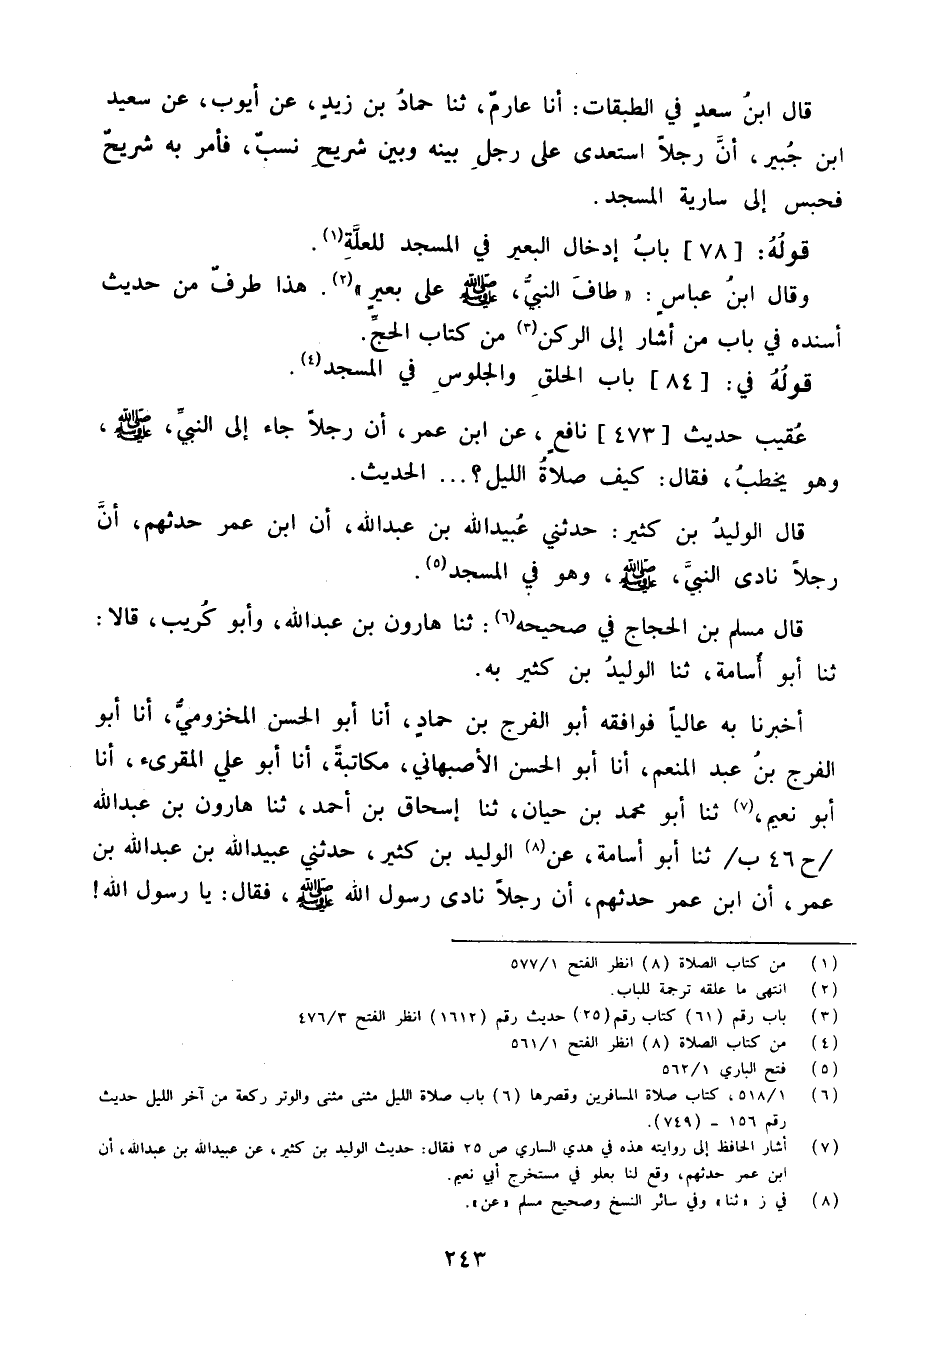 قال ابنُ سعدٍ في الطبقات: أنا عارمٌ، ثنا حمادُ بن زيدٍ، عن أيوب، عن سعيد
ابن جُبير، أنَّ رجلاً استعدى على رجلٍ بينه وبين شريحٍ نسبٌ، فأمر به شريحٌ
فحبس إلى سارية المسجد.
قولُهُ: [٧٨] بابُ إدخال البعير في المسجد للعلَّةِ(١).
وقال ابنُ عباسٍ: «طافَ النبيُّ، ﷺ على بعيرٍ»(٢). هذا طرفٌ من حديث
أسنده في باب من أشار إلى الركن(٣) من كتاب الحجِّ.
قولُهُ في: [٨٤] باب الحلقِ والجلوسِ في المسجد(٤).
عُقيب حديث [٤٧٣] نافعٍ، عن ابن عمر، أن رجلاً جاء إلى النبيِّ، ﷺ،
وهو يخطبُ، فقال: كيف صلاةُ الليل؟... الحديث.
قال الوليدُ بن كثير: حدثني عُبيدالله بن عبدالله، أن ابن عمر حدثهم، أنَّ
رجلاً نادى النبيَّ، ﷺ، وهو في المسجد(٥).
قال مسلم بن الحجاج في صحيحه(٦): ثنا هارون بن عبدالله، وأبو كُريب، قالا:
ثنا أبو أُسامة، ثنا الوليدُ بن كثير به.
أخبرنا به عالياً فوافقه أبو الفرج بن حمادٍ، أنا أبو الحسن المخزوميُّ، أنا أبو
الفرج بنُ عبد المنعم، أنا أبو الحسن الأصبهاني، مكاتبةً، أنا أبو علي المقرىء، أنا
أبو نعيم،(٧) ثنا أبو محمد بن حيان، ثنا إسحاق بن أحمد، ثنا هارون بن عبدالله
/ح ٤٦ ب/ ثنا أبو أسامة، عن(٨) الوليد بن كثير، حدثني عبيدالله بن عبدالله بن
عمر، أن ابن عمر حدثهم، أن رجلاً نادى رسول الله ﷺ، فقال: يا رسول الله!
(١) من كتاب الصلاة (٨) انظر الفتح ٥٧٧/١
(٢) انتهى ما علقه ترجمة للباب.
(٣) باب رقم (٦١) كتاب رقم (٢٥) حديث رقم (١٦١٢) انظر الفتح ٤٧٦/٣
(٤) من كتاب الصلاة (٨) انظر الفتح ٥٦١/١
(٥) فتح الباري ٥٦٢/١
(٦) ٥١٨/١، كتاب صلاة المسافرين وقصرها (٦) باب صلاة الليل مثنى مثنى والوتر ركعة من آخر الليل حديث
رقم ١٥٦ - (٧٤٩).
(٧) أشار الحافظ إلى روايته هذه في هدي الساري ص ٢٥ فقال: حديث الوليد بن كثير، عن عبيدالله بن عبدالله، أن
ابن عمر حدثهم، وقع لنا بعلو في مستخرج أبي نعيم.
(٨) في ز «ثنا» وفي سائر النسخ وصحيح مسلم «عن».
٢٤٣